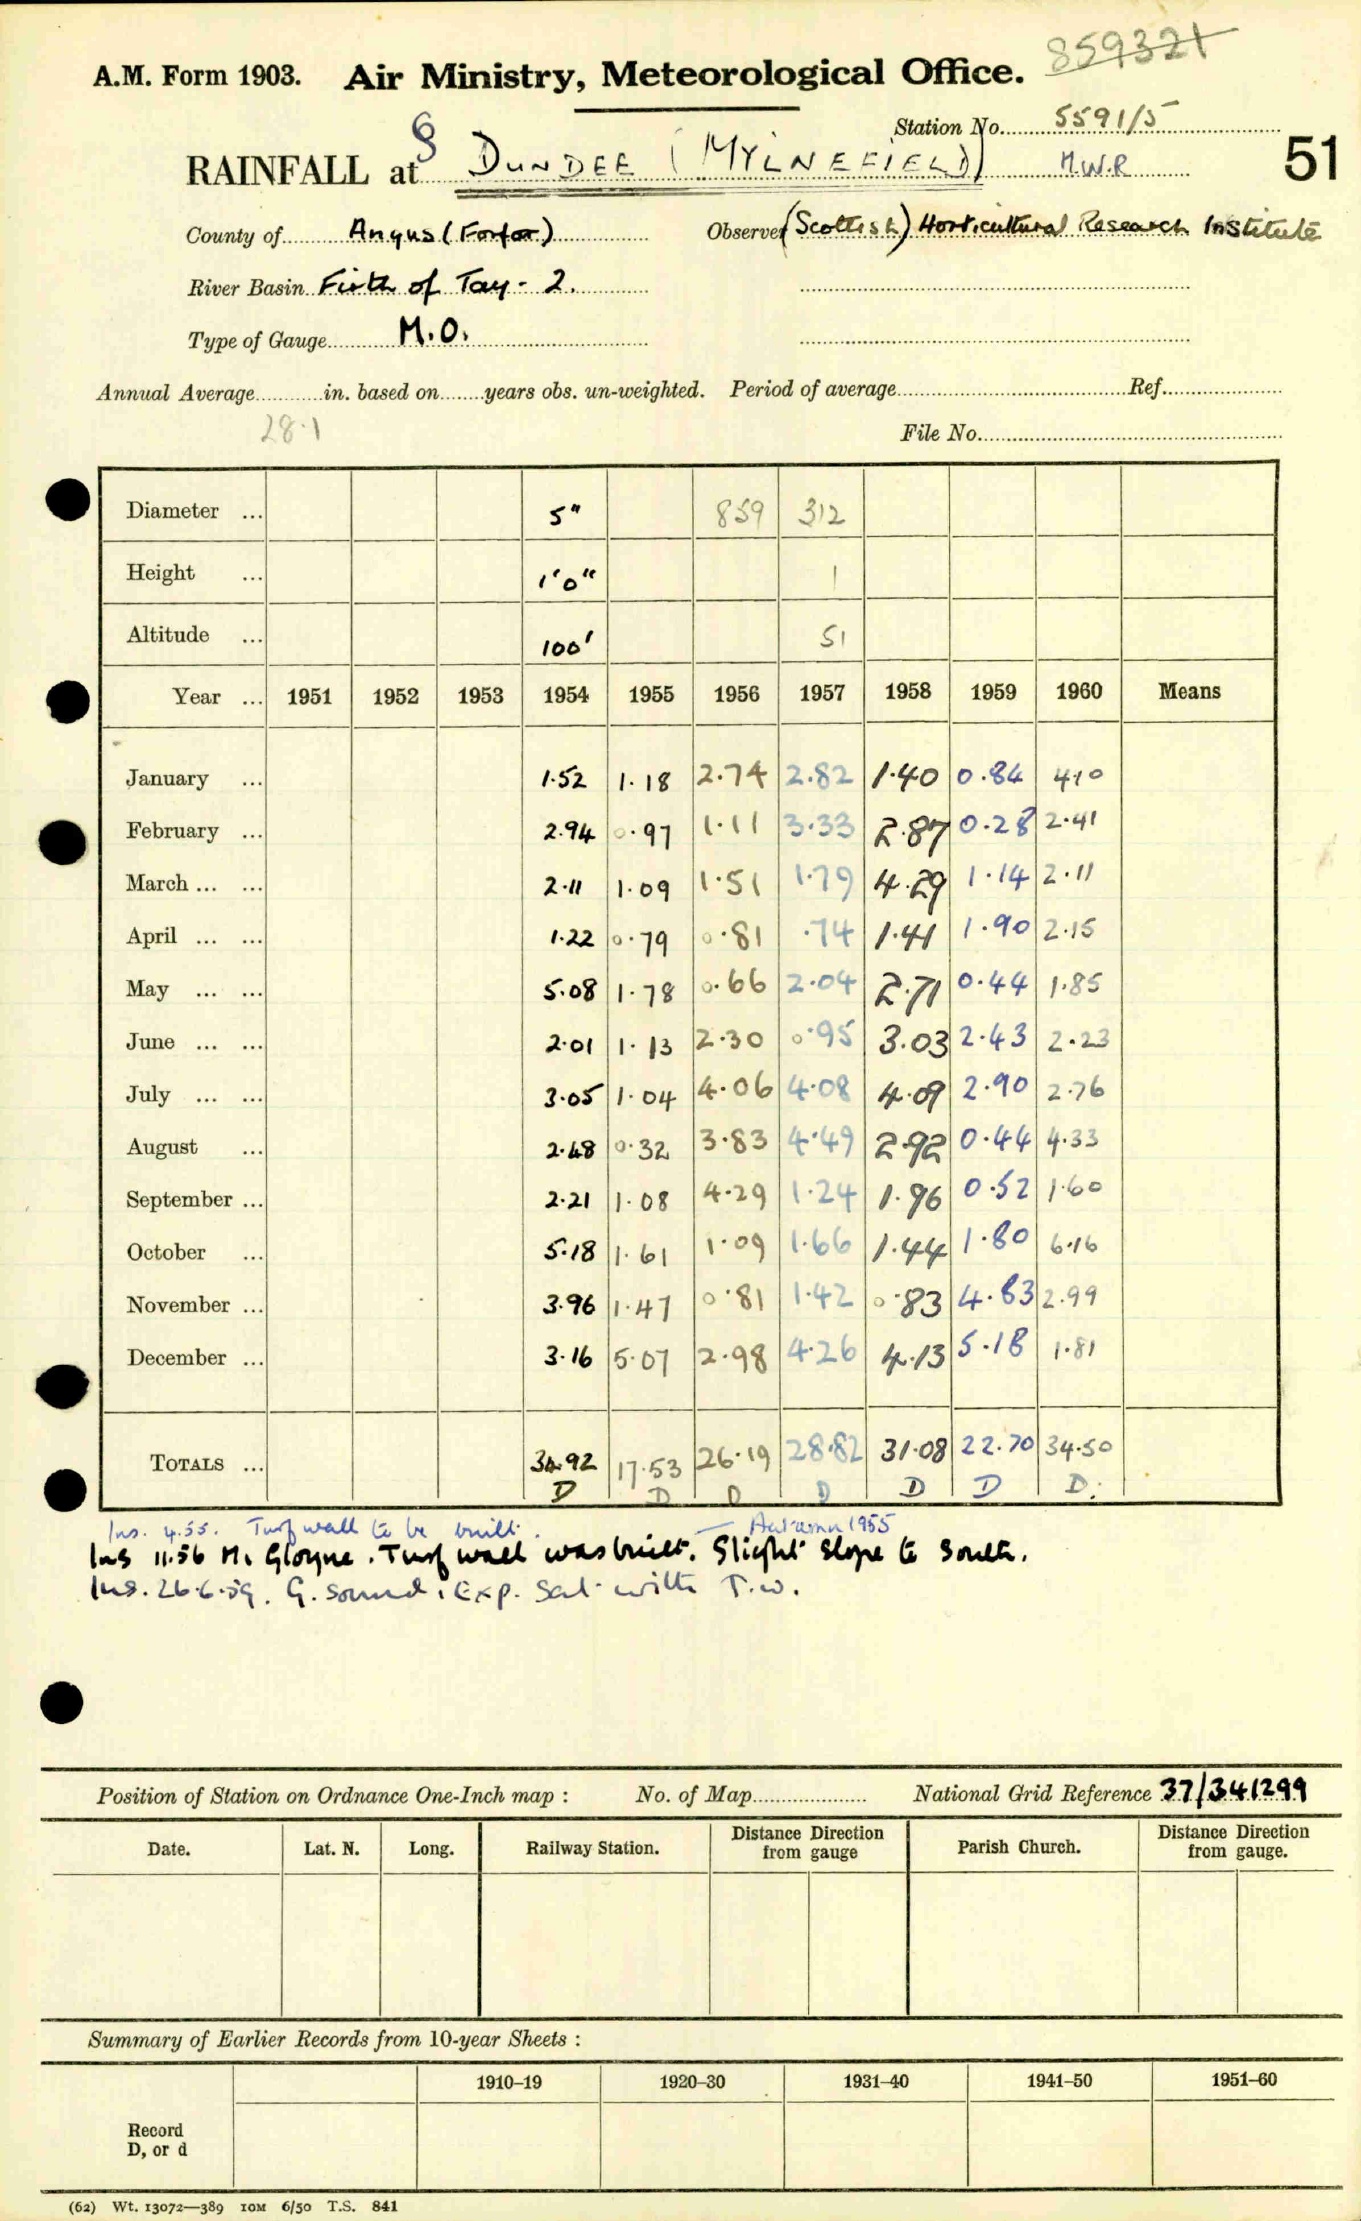 859321
A.M. Form 1903. Air Ministry, Meteorological Office.
Station No. 5591/5
RAINFALL at § DUNDEE (MYLNEFIELD) M.W.R 51
County of Angus (Forfar) Observer (Scottish) Horticultural Research Institute
River Basin Firth of Tay - 2.
Type of Gauge M.O.
Annual Average in. based on years obs. un-weighted. Period of average Ref.
28.1
File No.
Diameter ... 5" 859 312
Height ... 1'0" 1
Altitude ... 100' 51
Year ... 1951 1952 1953 1954 1955 1956 1957 1958 1959 1960 Means
January ... 1.52 1.18 2.74 2.82 1.40 0.84 4.10
February ... 2.94 0.97 1.11 3.33 2.87 0.28 2.41
March ... ... 2.11 1.09 1.51 1.79 4.29 1.14 2.11
April ... ... 1.22 0.79 0.81 .74 1.41 1.90 2.15
May ... ... 5.08 1.78 0.66 2.04 2.71 0.44 1.85
June ... ... 2.01 1.13 2.30 0.95 3.03 2.43 2.23
July ... ... 3.05 1.04 4.06 4.08 4.09 2.90 2.76
August ... 2.48 0.32 3.83 4.49 2.92 0.44 4.33
September ... 2.21 1.08 4.29 1.24 1.96 0.52 1.60
October ... 5.18 1.61 1.09 1.66 1.44 1.80 6.16
November ... 3.96 1.47 0.81 1.42 0.83 4.83 2.99
December ... 3.16 5.07 2.98 4.26 4.13 5.18 1.81
TOTALS ... 34.92 17.53 26.19 28.82 31.08 22.70 34.50
D D D D D D D.
Ins. 4.55. Turf wall to be built. — Autumn 1955
Ins 11.56 M. Gloyne. Turf wall was built. Slight slope to South.
Ins. 26.6.59. G. sound. Exp. Sat. with T.W.
Position of Station on Ordnance One-Inch map : No. of Map National Grid Reference 37/341299
Date. Lat. N. Long. Railway Station. Distance from Direction gauge Parish Church. Distance from Direction gauge.
Summary of Earlier Records from 10-year Sheets :
1910–19 1920–30 1931–40 1941–50 1951–60
Record
D, or d
(62) Wt. 13072—389 10M 6/50 T.S. 841